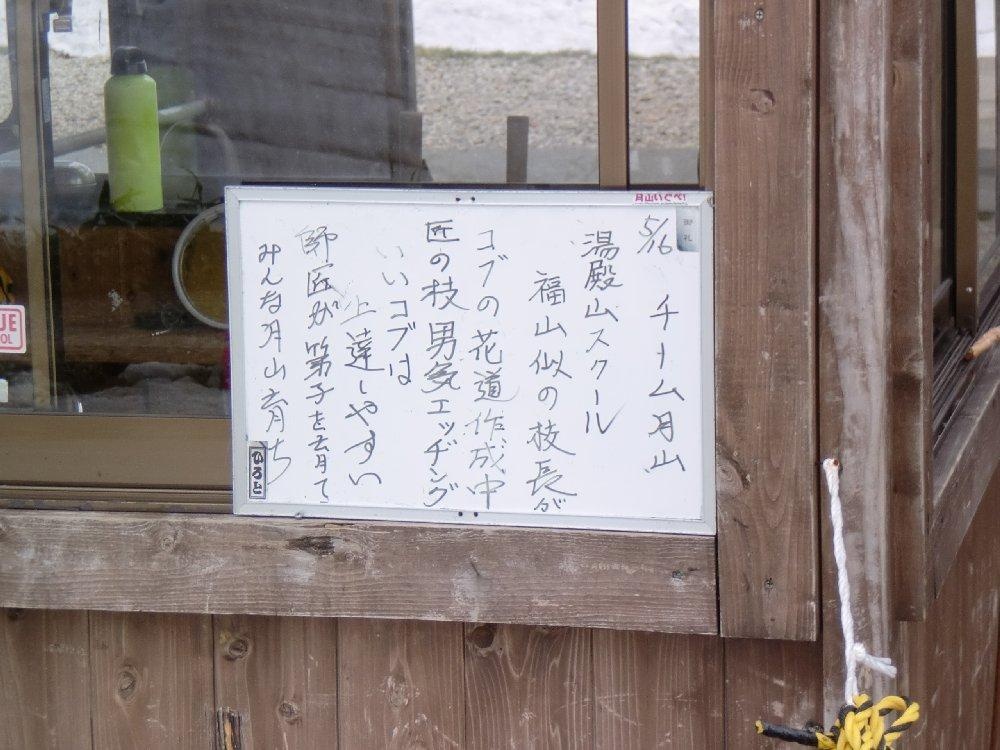 月山いぐべ!
5/16
チーム月山
湯殿山スクール
福山似の枝長が
コブの花道作成中
匠の枝男気エッヂング
いいコブは
上達しやすい
師匠が第子を育て
みんな月山育ち
ひろと
UE
OL